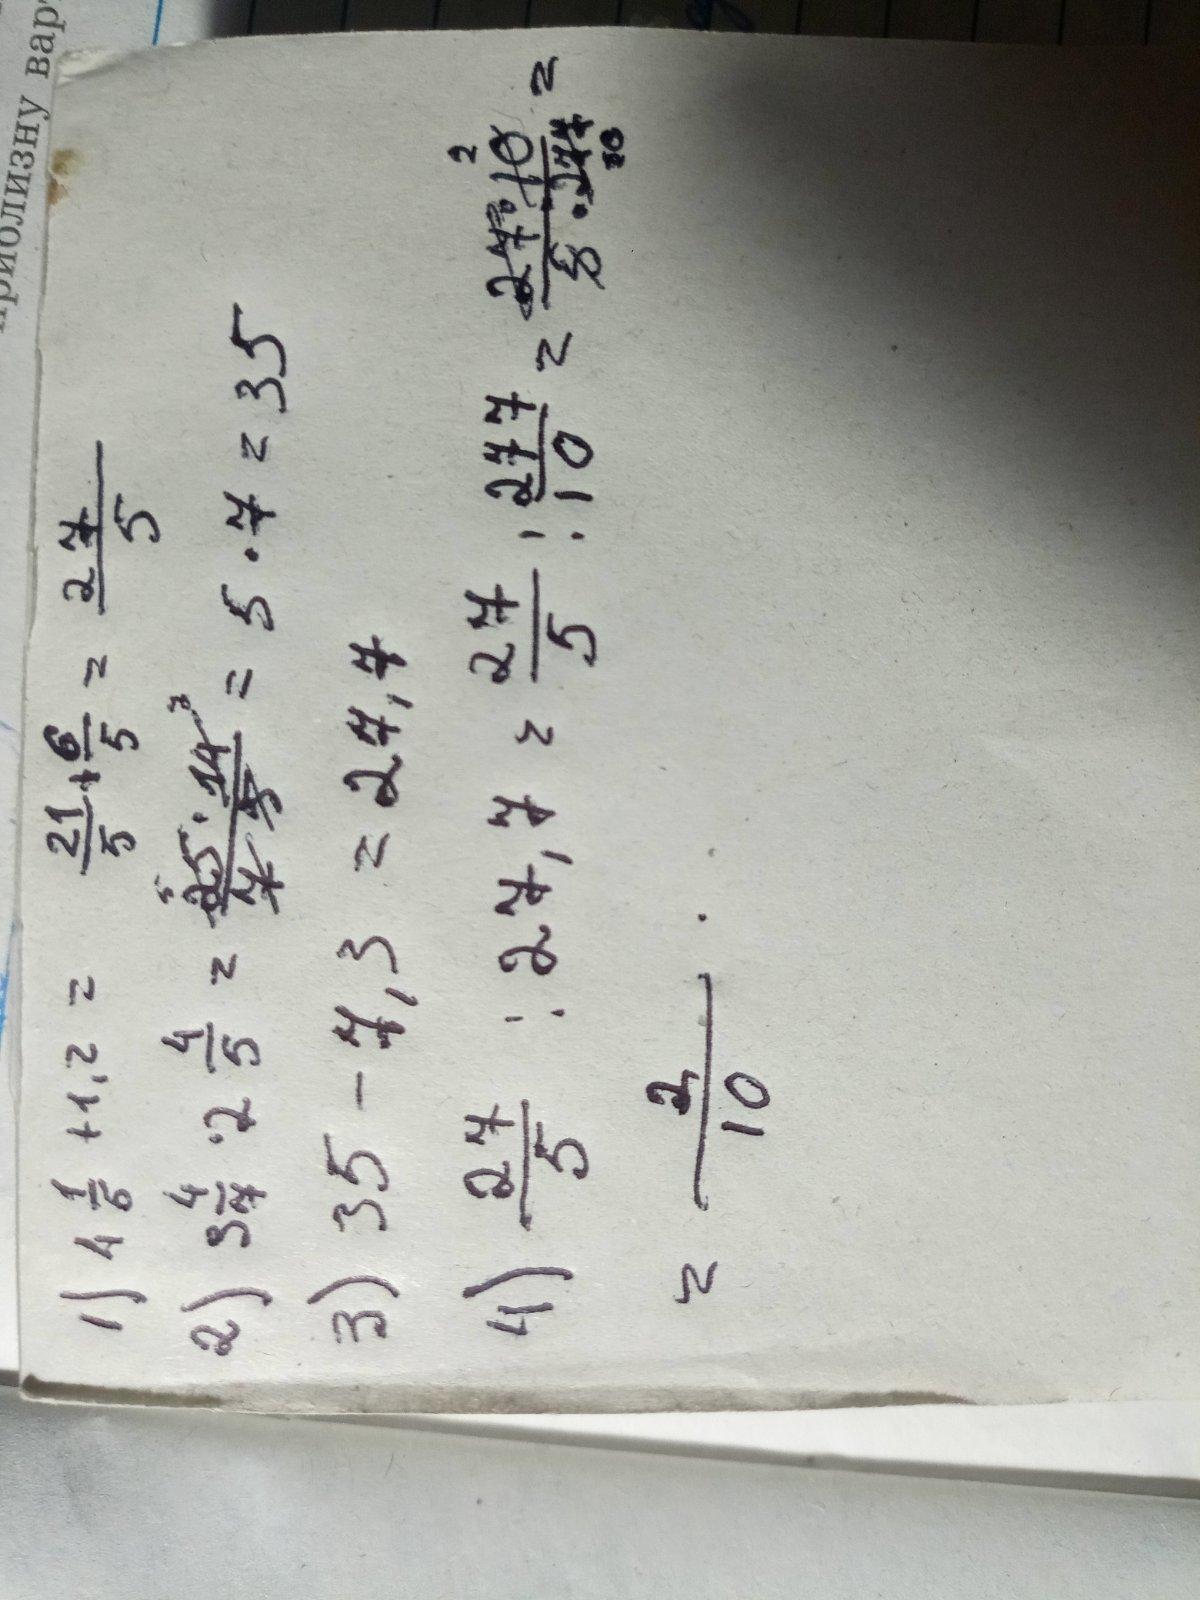 приолизну вар
1) 4 1/5 + 1,2 = 21/5 + 6/5 = 27/5
2) 3 4/7 · 2 4/5 = 25 · 14/7 · 5 = 5 · 7 = 35
3) 35 - 7,3 = 27,7
4) 27/5 : 27,7 = 27/5 : 277/10 = 27 · 10/5 · 277 =
= 2/10 .